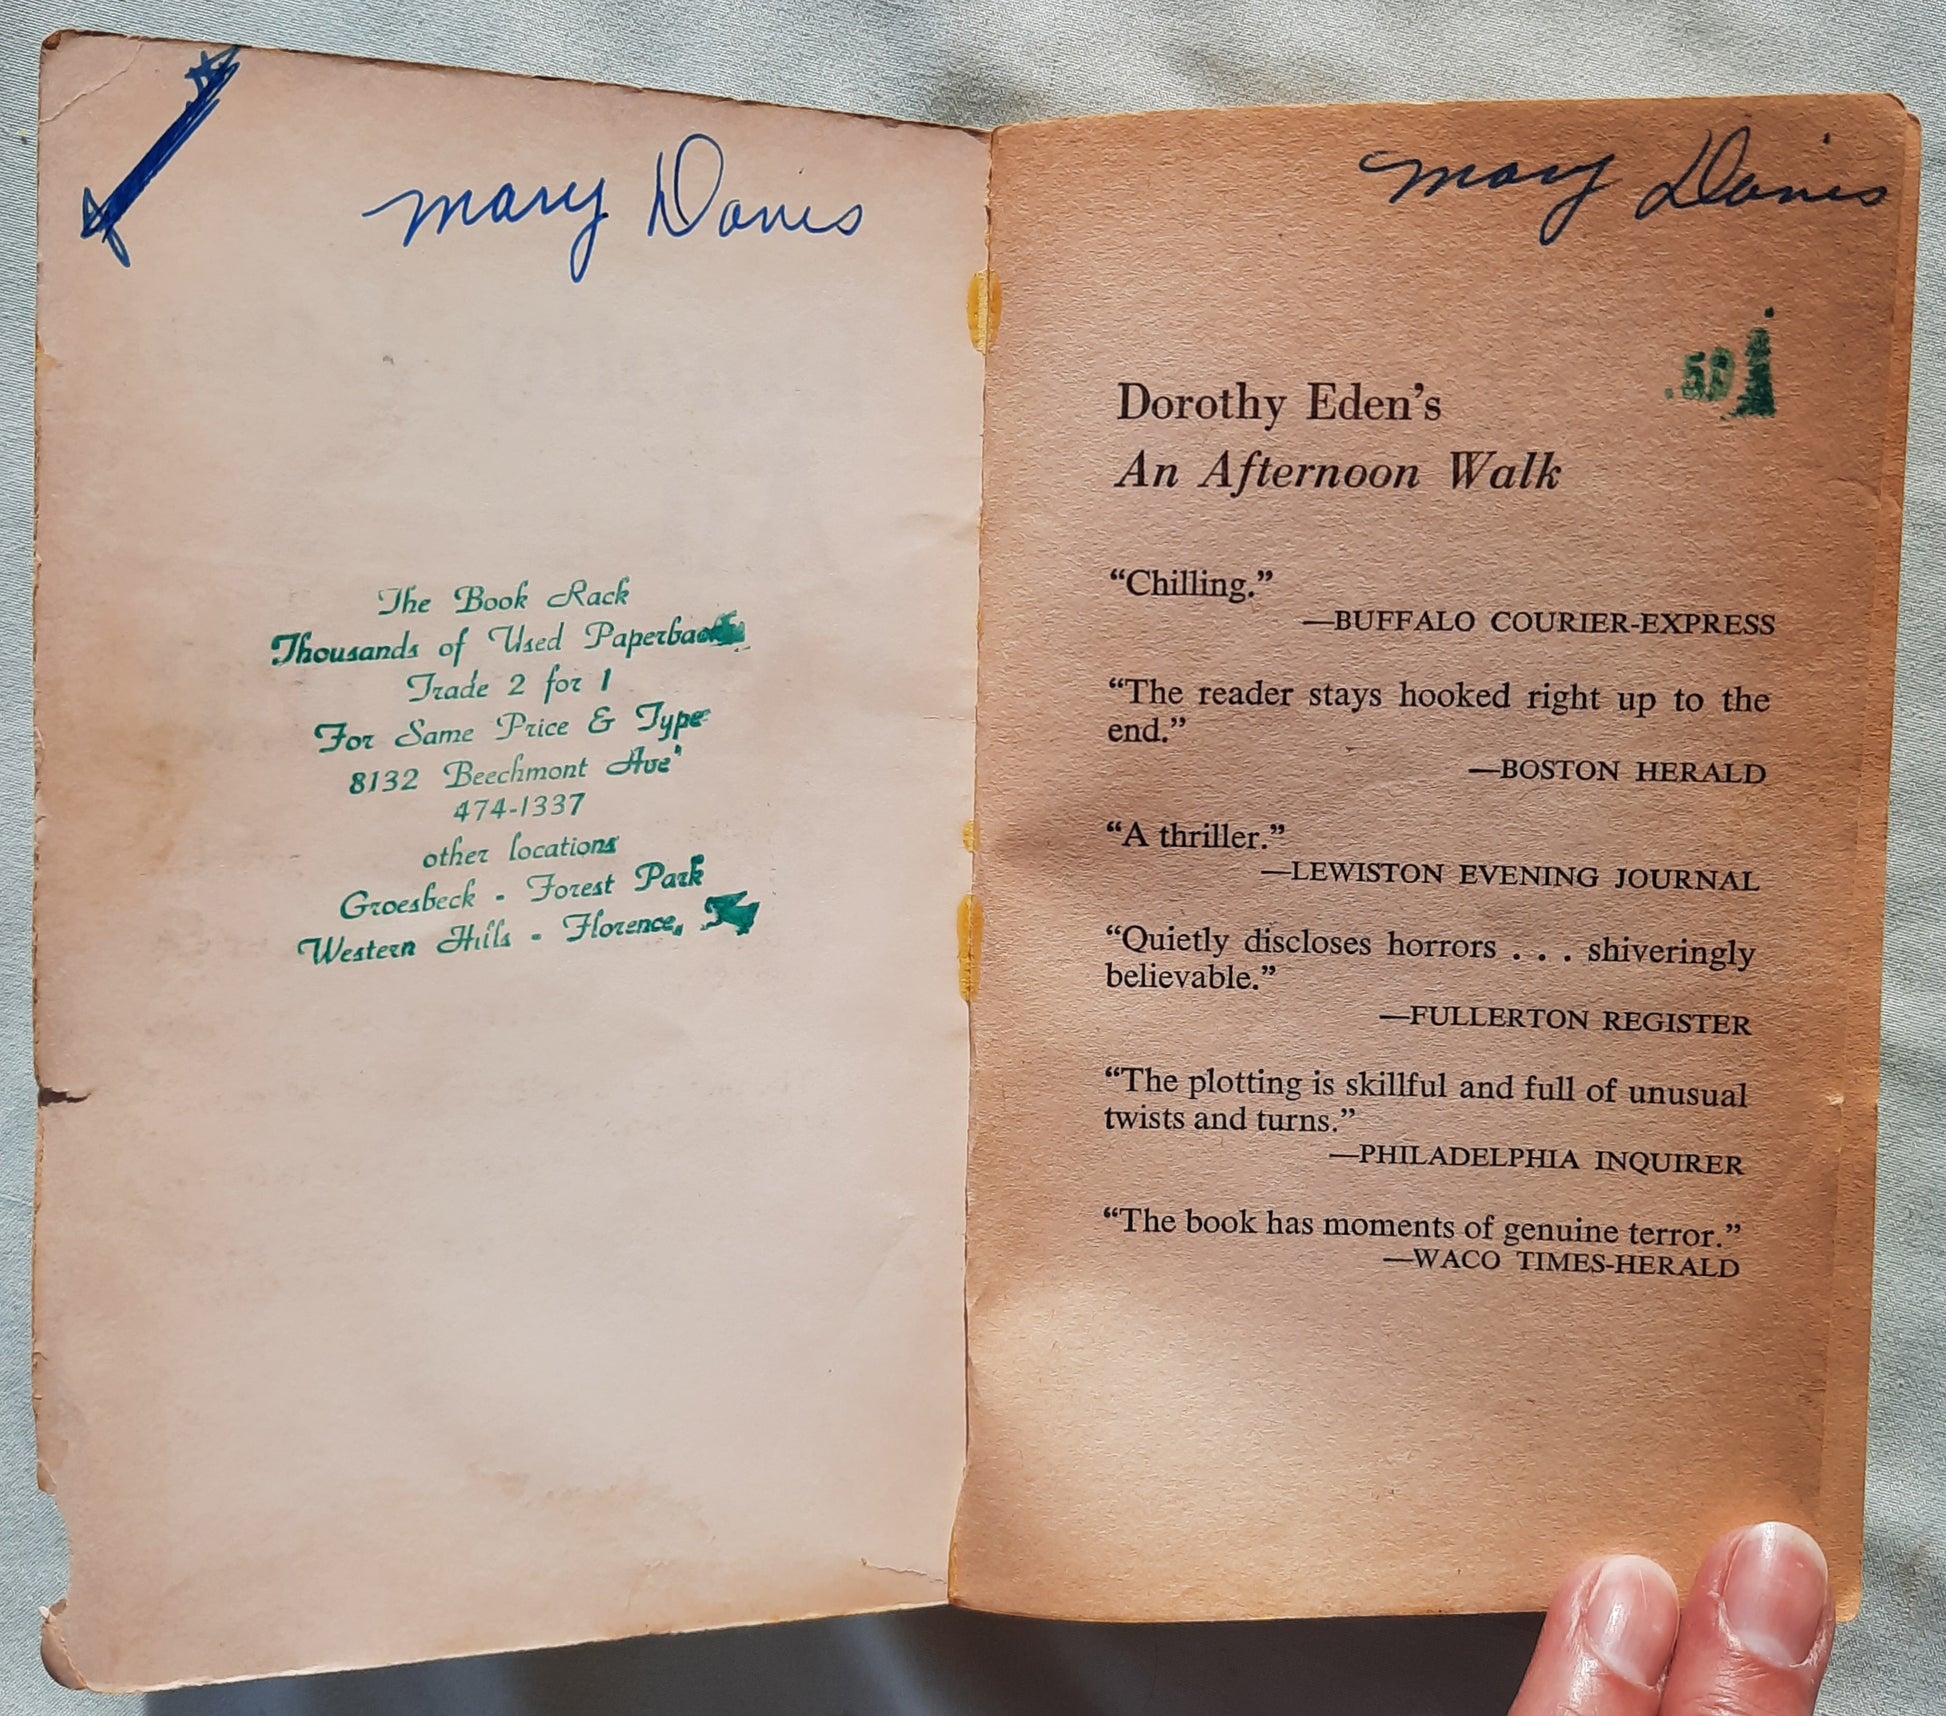 Mary Davis
The Book Rack
Thousands of Used Paperbacks
Trade 2 for 1
For Same Price & Type
8132 Beechmont Ave
474-1337
other locations
Groesbeck - Forest Park
Western Hills - Florence, Ky
Mary Davis
.50
Dorothy Eden's
An Afternoon Walk
“Chilling.”
—BUFFALO COURIER-EXPRESS
“The reader stays hooked right up to the
end.”
—BOSTON HERALD
“A thriller.”
—LEWISTON EVENING JOURNAL
“Quietly discloses horrors . . . shiveringly
believable.”
—FULLERTON REGISTER
“The plotting is skillful and full of unusual
twists and turns.”
—PHILADELPHIA INQUIRER
“The book has moments of genuine terror.”
—WACO TIMES-HERALD